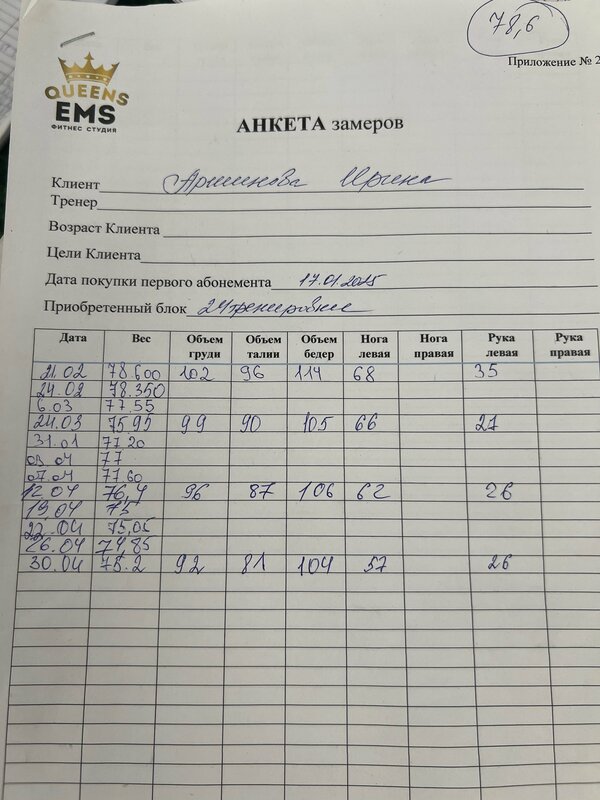 78,6
Приложение № 2
QUEENS
EMS
ФИТНЕС СТУДИЯ
АНКЕТА замеров
Клиент Аршинова Ирина
Тренер
Возраст Клиента
Цели Клиента
Дата покупки первого абонемента 17.01.2025
Приобретенный блок 24 тренировки
Дата Вес Объем груди Объем талии Объем бедер Нога левая Нога правая Рука левая Рука правая
21.02 78.600 102 96 114 68 35
24.02 78.350
6.03 77.55
24.03 75.95 99 90 105 66 27
31.01 77.20
03.04 77
07.04 77.60
12.04 76,4 96 87 106 62 26
19.04 75
22.04 75,05
26.04 74,85
30.04 75.2 92 81 104 57 26